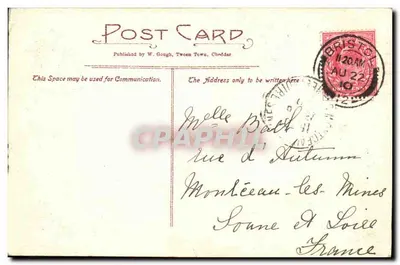 POST CARD
Published by W. Gough, Tween Town, Cheddar
This Space may be used for Communication.
The Address only to be written here
BRISTOL
11 20 AM
AU 22
10
Melle Bath
rue d'Autunn
Montceau-les-Mines
Sonne et Loire
France